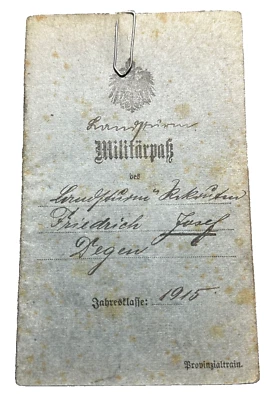 Landsturm
Militärpaß
des
Landsturm Rekruten
Friedrich Josef
Degen
Jahresklasse: 1915
Provinzialtrain.